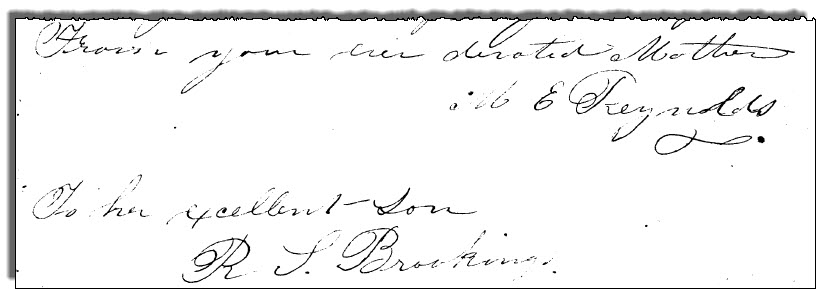 From your ever devoted Mother
M E Reynolds
To her excellent Son
R. S. Brookings.